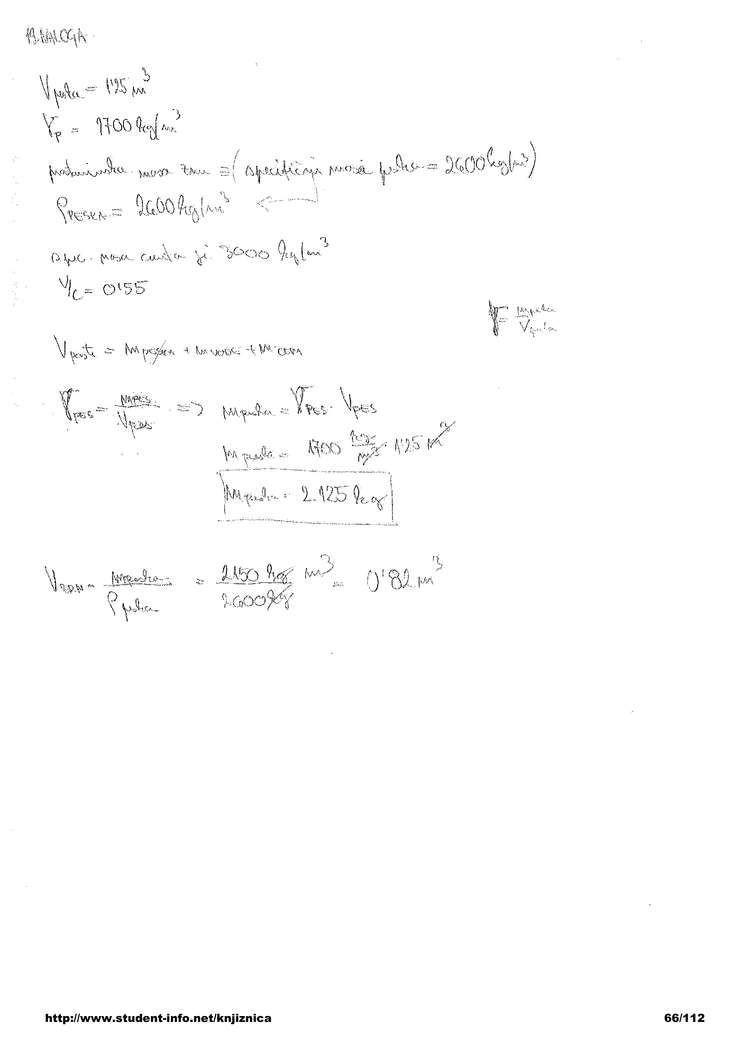 19. NALOGA
V peska = 1'25 m³
γp = 1700 kg/m³
prostorninska masa zrn = (specifična masa peska = 2600 kg/m³)
ρPESKA = 2600 kg/m³
spec. masa cementa je 3000 kg/m³
V/C = 0'55
γ = m peska / V peska
V paste = m peska + m vode + m cem
γPES = mPES / VPES => m peska = γPES · VPES
m peska = 1700 kg/m³ · 1'25 m³
m peska = 2.125 kg
VZRN = m peska / ρ peska = 2150 kg / 2600 kg m³ = 0'82 m³
http://www.student-info.net/knjiznica 66/112